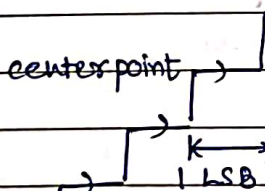 center point
1 LSB